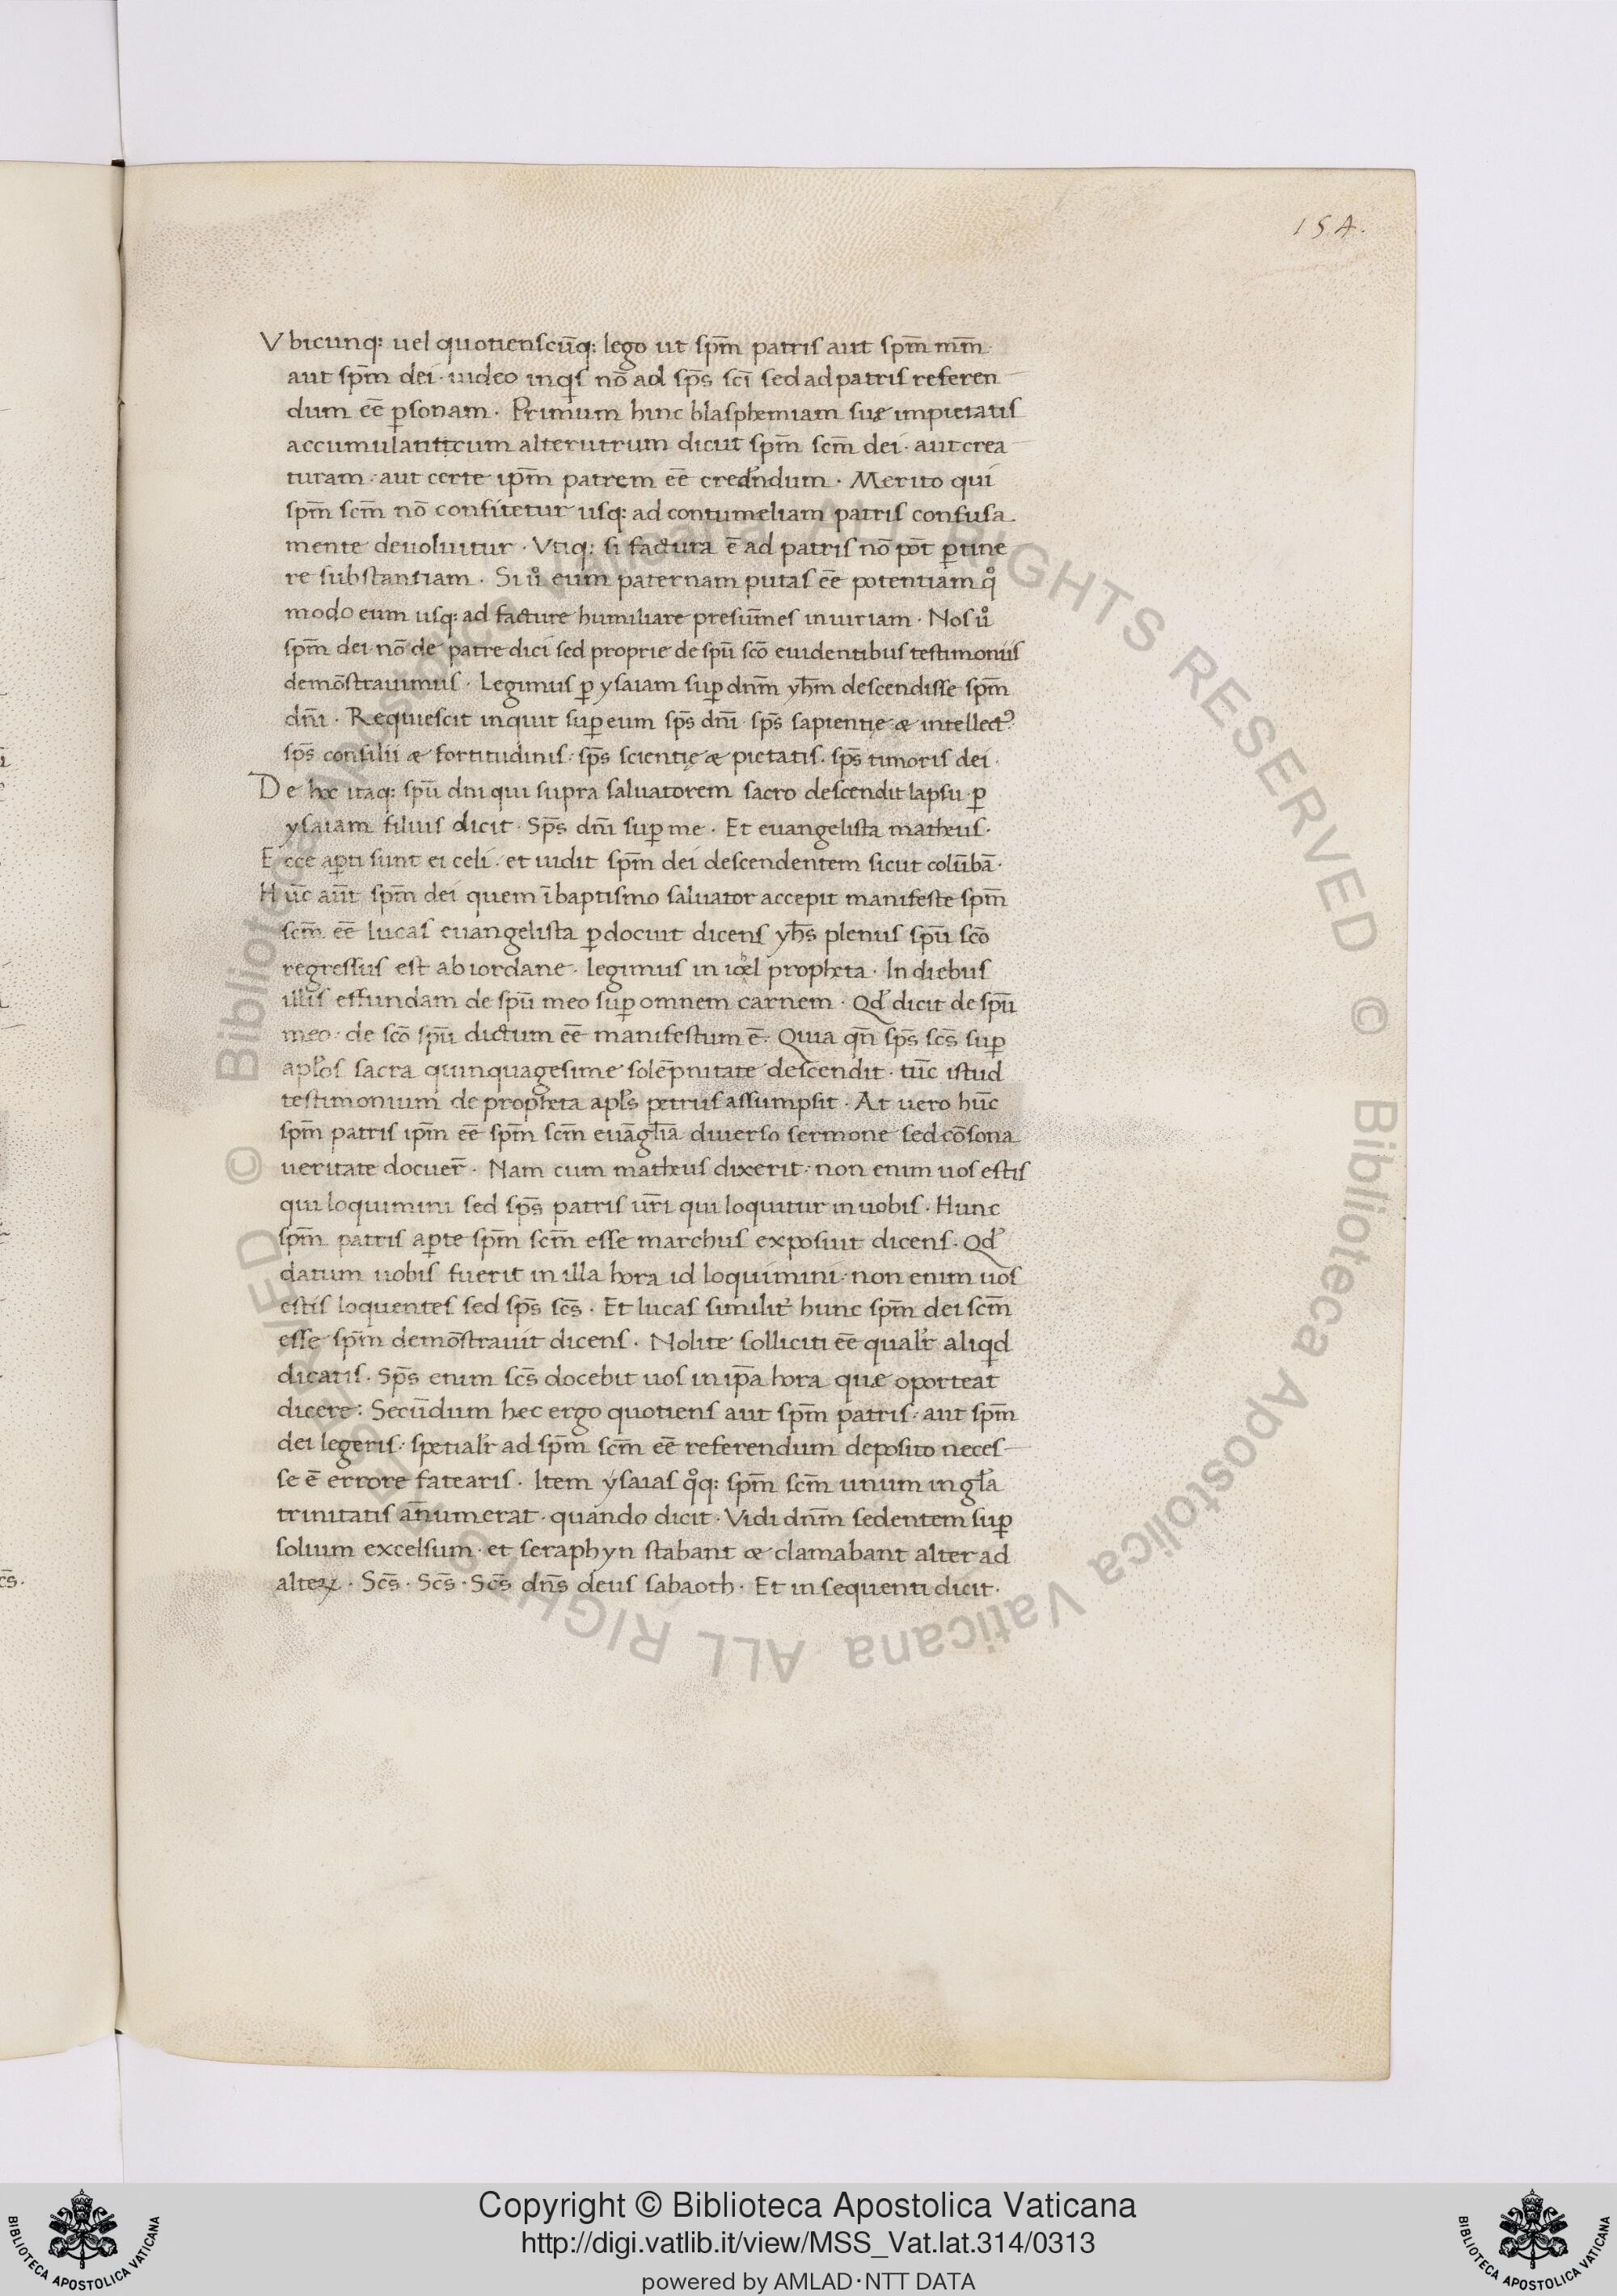 154.
Vbicunq: uel quotienscūq: lego ut sp̄m patris aut sp̄m mm̄
aut sp̄m dei · uideo inqͥs nō ad sp̄s sc̄i sed ad patris referen
dum eē p̲sonam · Primum hinc blasphemiam suæ impietatis
cum alterutrum dicūt sp̄m sc̄m dei · aut crea
turam · aut certe ip̄m patrem eē credēndum · Merito qui
sp̄m sc̄m nō confitetur usq: ad contumeliam patris confusa
mente deuoluitur · Vtiq: si factura ē ad patris nō pōt p̲tine
re substantiam · Si uͦ eum paternam putas eē potentiam qͦ
modo eum usq: ad facture humiliare presūmes iniuriam · Nos uͦ
sp̄m dei nō de patre dici sed proprie de spū scō euidentibus testimoniis
demōstrauimus · Legimus p̲ ysaiam sup̲ dn̄m yh̄m descendisse sp̄m
dn̄i · Requiescit inquit sup̲ eum sp̄s dn̄i · sp̄s sapientię & intellectꝰ ·
sp̄s consilii & fortitudinis · sp̄s scientię & pietatis · sp̄s timoris dei ·
De hoc itaq: spū dn̄i qui supra saluatorem sacro descendit lapsu · p̲
ysaiam filius dicit · Sp̄s dn̄i sup̲ me · Et euangelista matheus ·
Ecce ap̲ti sunt ei celi · et uidit sp̄m dei descendentem sicut colūbā ·
Hūc aūt sp̄m dei quem ī baptismo saluator accepit manifeste sp̄m
sc̄m eē lucas euangelista p̲docuit dicens yh̄s plenus spū scō
regressus est ab iordane · legimus in ioel propheta · In diebus
illis effundam de spū meo sup̲ omnem carnem · Qd̓ dicit de spū
meo · de scō spū dictum eē manifestum ē · Quia qn̄ sp̄s sc̄s sup̲
apl̄os sacra quinquagesime solēpnitate descendit · tūc istud
testimonium de propheta apl̄s petrus assumpsit · At uero hūc
sp̄m patris ip̄m eē sp̄m sc̄m euāgl̄ia diuerso sermone sed cōsona
ueritate docuer̄ · Nam cum matheus dixerit · non enim uos estis
qui loquimini sed sp̄s patris ur̄i qui loquitur in uobis · Hunc
sp̄m patris ap̲te sp̄m sc̄m esse marchus exposuit dicens · Qd̓
datum uobis fuerit in illa hora id loquimini · non enim uos
estis loquentes sed sp̄s sc̄s · Et lucas similit̓ hunc sp̄m dei sc̄m
esse sp̄m demōstrauit dicens · Nolite solliciti eē qualr̄ aliqͥd
dicatis · Sp̄s enim sc̄s docebit uos in ip̄a hora quæ oporteat
dicere : Secūdum hec ergo quotiens aut sp̄m patris · aut sp̄m
dei legeris · spetialr̄ ad sp̄m sc̄m eē referendum deposito neces
se ē errore fatearis · Item ysaias qͦq: sp̄m sc̄m unum in gl̄a
trinitatis an̄umerat · quando dicit · Vidi dn̄m sedentem sup̲
solium excelsum · et seraphyn stabant & clamabant alter ad
alteꝝ · Sc̄s · Sc̄s · Sc̄s dn̄s deus sabaoth · Et in sequenti dicit ·
c̄s.
© Biblioteca Apostolica Vaticana ALL RIGHTS RESERVED © Biblioteca Apostolica Vaticana ALL RIGHTS RESERVED
Copyright © Biblioteca Apostolica Vaticana
http://digi.vatlib.it/view/MSS_Vat.lat.314/0313
powered by AMLAD·NTT DATA
BIBLIOTECA APOSTOLICA VATICANA
BIBLIOTECA APOSTOLICA VATICANA